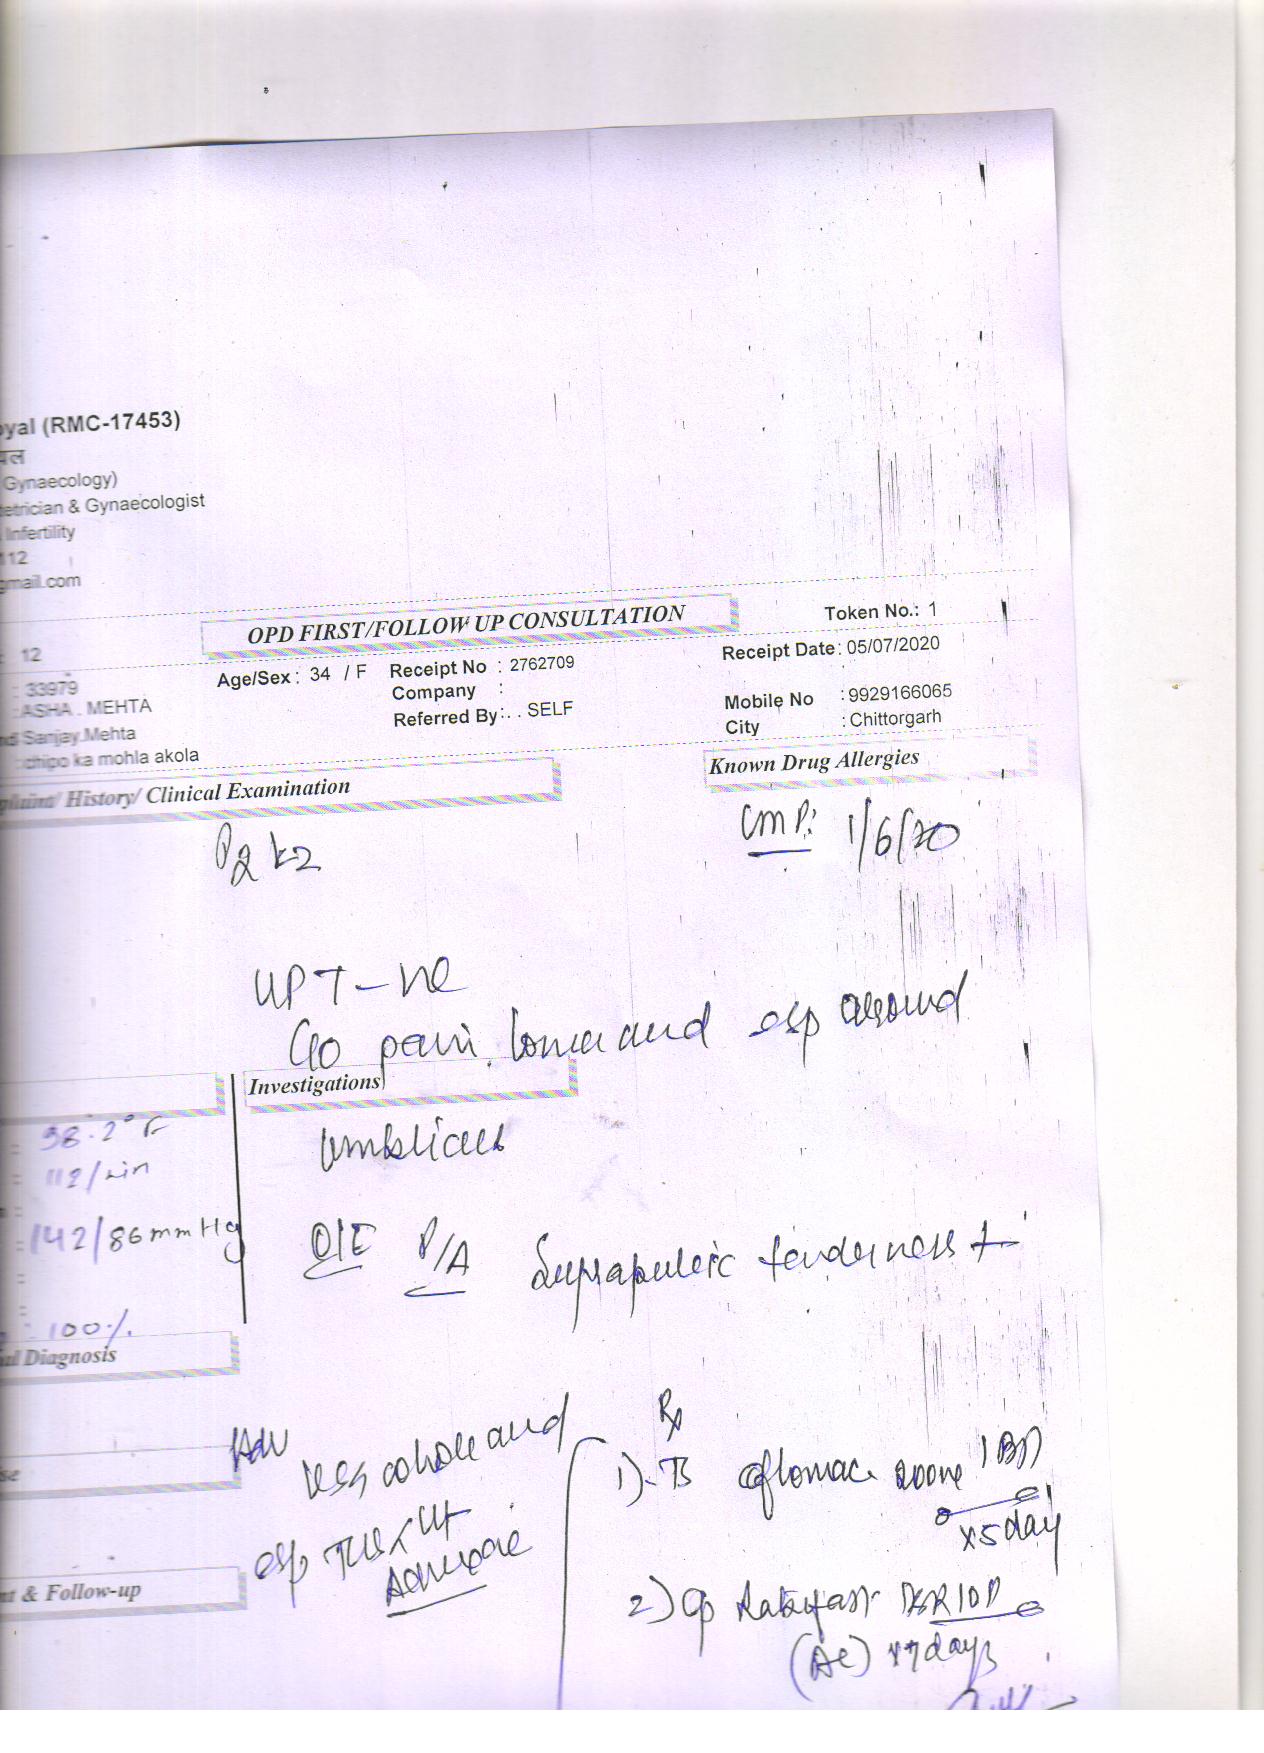 oyal (RMC-17453)
यल
Gynaecology)
etrician & Gynaecologist
Infertility
112
gmail.com
OPD FIRST/FOLLOW UP CONSULTATION
Token No.: 1
: 12
Age/Sex : 34 / F Receipt No : 2762709
Receipt Date : 05/07/2020
: 33979
Company :
: ASHA . MEHTA
Referred By : . . SELF
Mobile No : 9929166065
Sanjay.Mehta
City : Chittorgarh
: chipo ka mohla akola
plaint/ History/ Clinical Examination
Known Drug Allergies
P2 L2
LMP: 1/6/20
UPT - ve
C/o pain lower abd esp around
Investigations
umblicus
98.2° F
112/min
: 142/86 mm Hg
O/E P/A Suprapubic tenderness +
: 100%
al Diagnosis
Adv
USG whole abd
esp
Adnexae
Rx
1) Tb 200mg 1 BD
x 5 day
se
2) Cp DSR 1 OD
(AC) x 7 days
nt & Follow-up